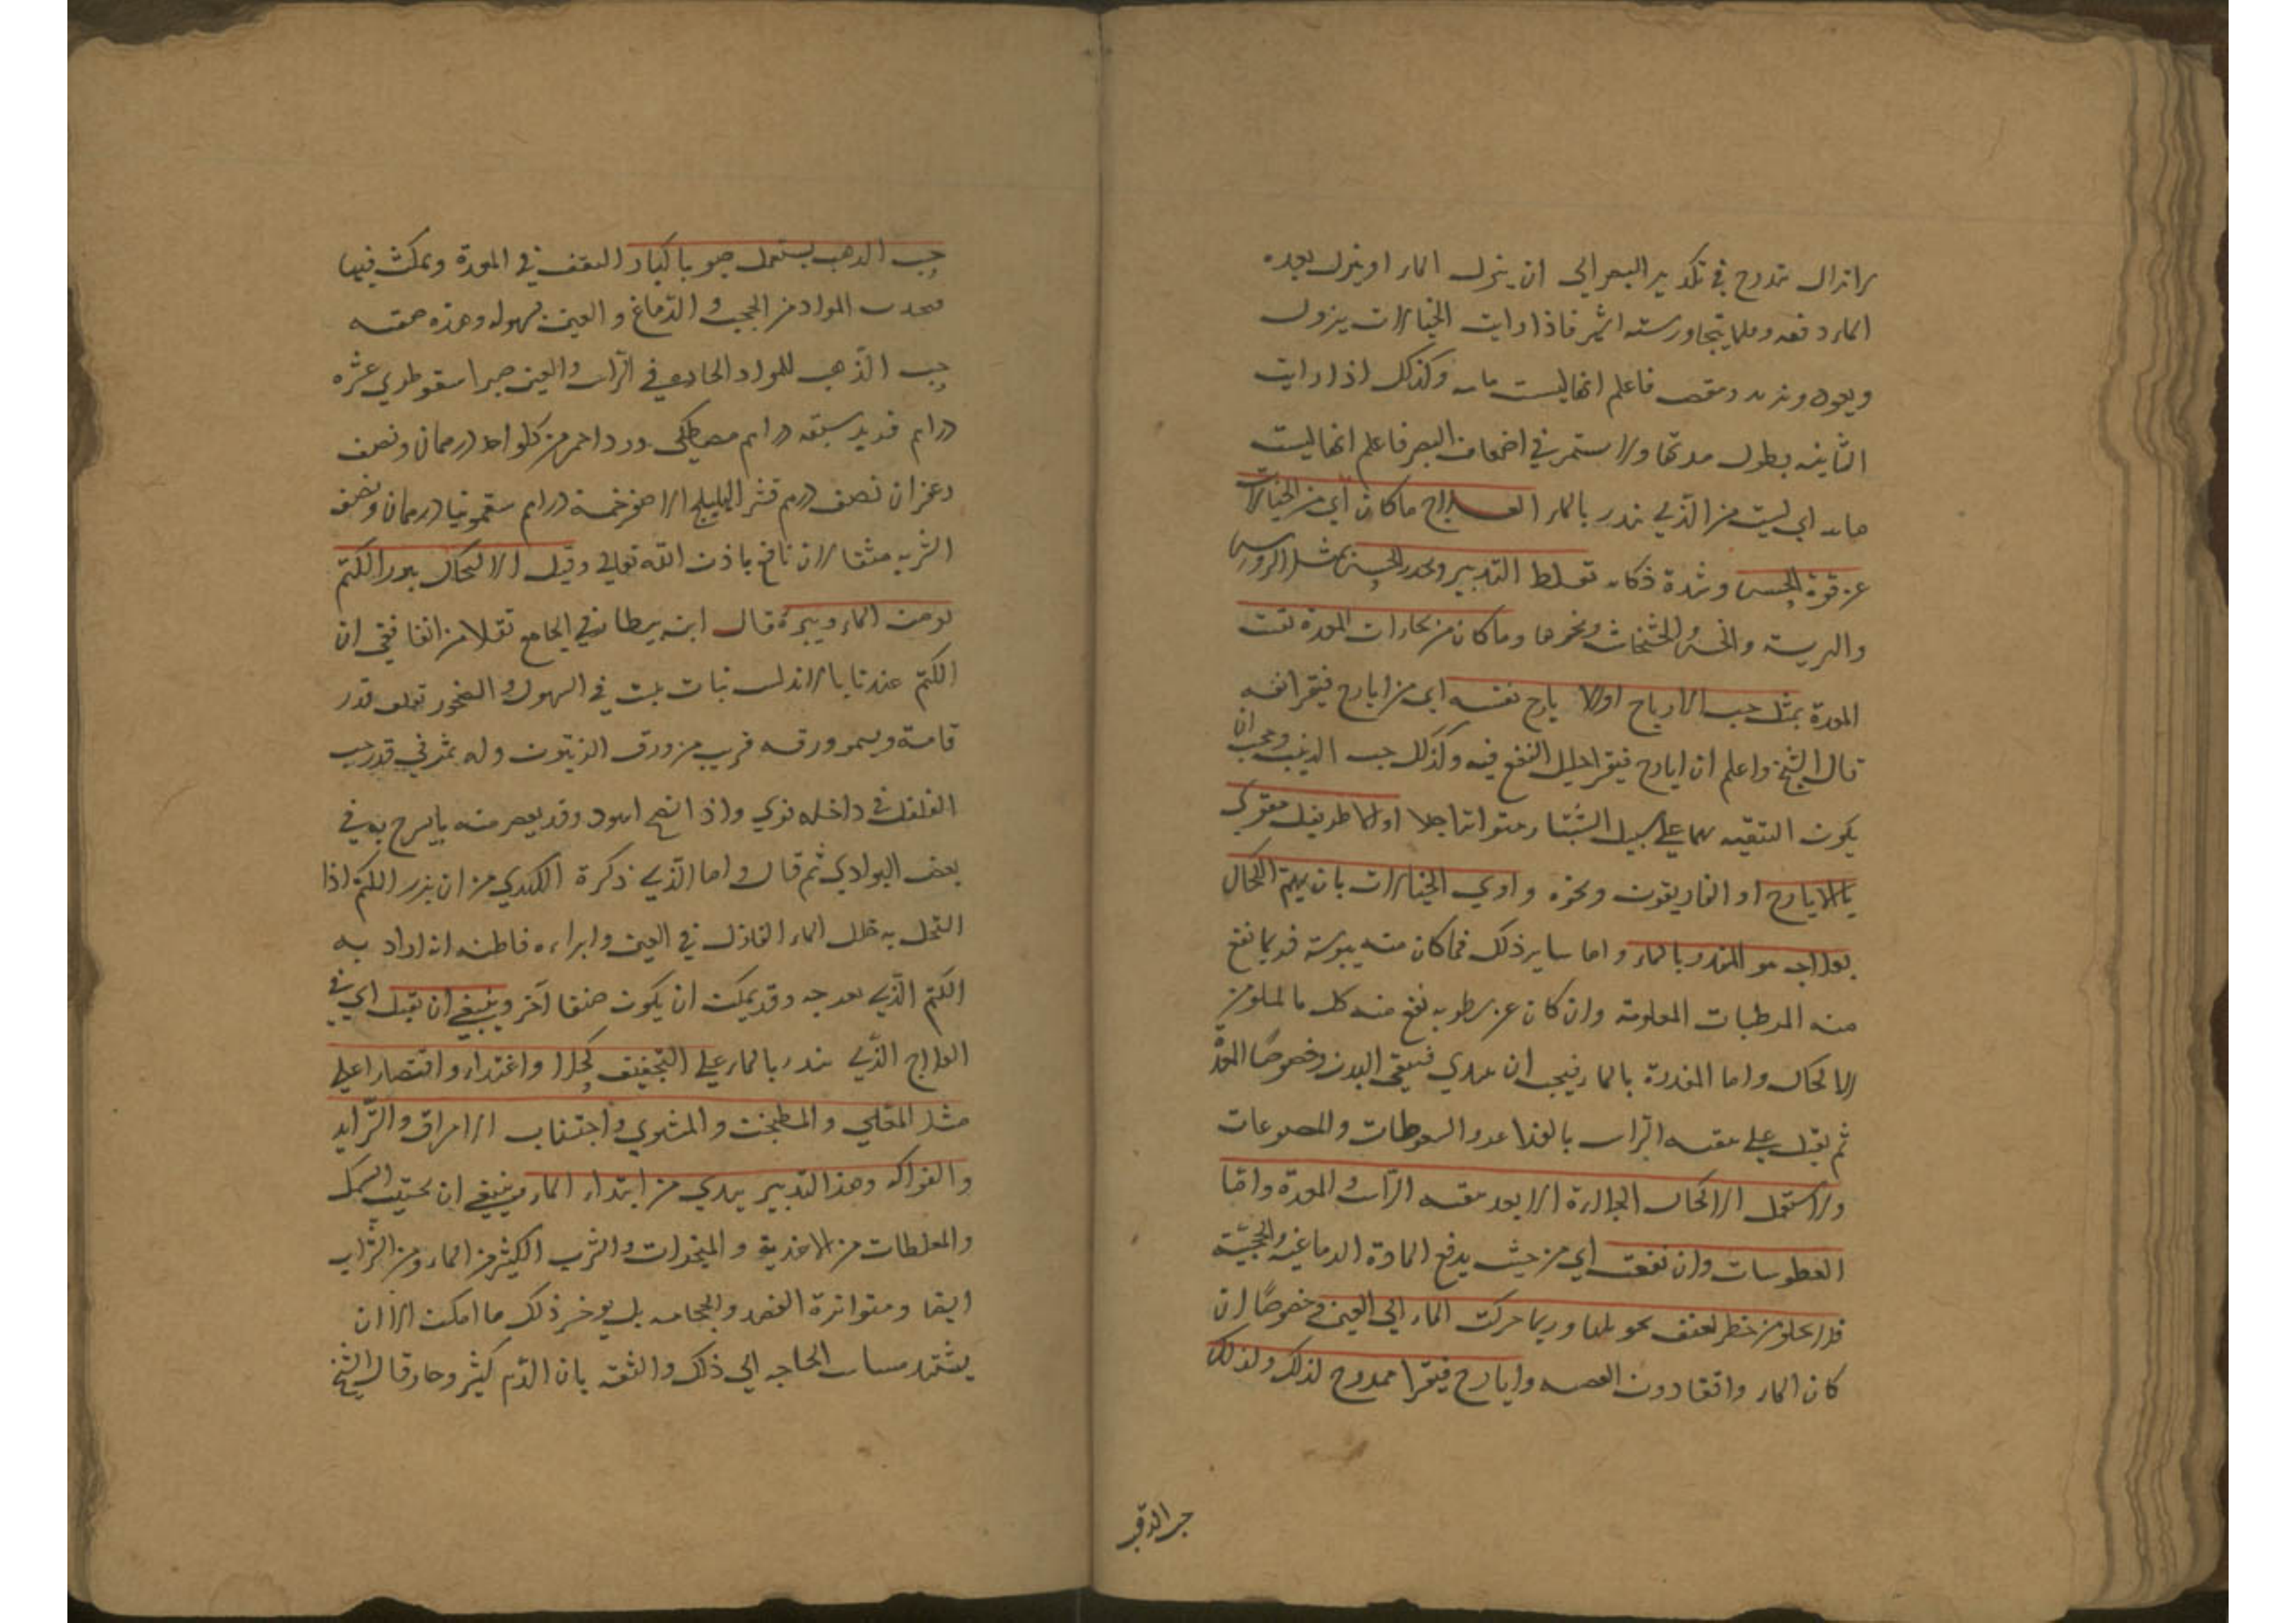 لا تزال تتدرج في تكدير البصر الي ان ينزل الماء او ينزل بعده
الماء دفعه وقلما يتجاوز ستة اشهر فاذا رايت الخيالات يزول
ويعود ويزيد وينقص فاعلم انها ليست مائيه وكذلك اذا رايت
الثابته يطول مدتها ولا استمر في اضعاف البصر فاعلم انها ليست
مائيه اي ليست من الذي ينذر بالماء العلاج ما كان أي من الخيالات
عن قوة الحس وشدة ذكائه تغلط التدبير ويخدر الحس بمثل الروس
والهريسة والخس والخشخاش ونحوها وما كان من بخارات المعدة نقيت
المعدة بمثل حب الايارج اولا يارج نفسه اي من ايارج فيقرا نفسه
قال الشيخ واعلم ان ايارج فيقرا جليل النفع فيه وكذلك حب الذهب ويجب ان
يكون التنقيه بهما علي سبيل الشبيار متواترا جلا او الاطريفل مقوي
بالايارج او الغاريقون ونحوه واولي الخيالات بان يهتم الكحال
بعلاجه هو المنذر بالماء واما ساير ذلك فما كان منه يبوسة فربما نفع
منه المرطبات المعلومة وان كان عن رطوبه نفع منه كل ما يجلو من
الاكحال واما المنذرة بالماء فيجب ان يبدي فينقي البدن وخصوصًا المعدة
ثم يقبل علي تنقيه الراس بالغراغر والسعوطات والمضوغات
ولا استعمل الاكحال الجالية الا بعد تنقيه الراس والمعدة واما
العطوسات وان نفعت اي من حيث يدفع المادة الدماغيه والحجبيّة
فلا يخلو من خطر لعنف تحويلها وربما حركت الماء الي العين وخصوصًا ان
كان الماء واقفا دون العصبه وايارج فيقرا ممدوح لذلك ولذلك
حب الذهب
حب الذهب يستعمل حبوبا كبارا لتقف في المعدة ويمكث فيها
فيجذب المواد من الحجب والدماغ والعين بسهوله وهذه صفته
حب الذهب للمواد الحادثه في الراس والعين صبر اسقوطري عشره
دراهم فديد سبعه دراهم مصطكي ورد احمر من كل واحد درهمان ونصف
زعفران نصف درهم قشر الهليلج الاصفر خمسة دراهم سقمونيا درهمان ونصف
الشربه مثقالان نافع باذن الله تعالي وقيل الاكتحال ببزر الكتم
يومن الماء ويبرئه قال ابن بيطار في الجامع نقلا من الغافقي ان
الكتم عندنا بالاندلس نبات ينبت في السهول والصخور تعلو قدر
قامة ويسمو ورقه قريب من ورق الزيتون وله ثمر في قدر حب
الفلفل في داخله نوي واذا نضج اسود وقد يعصر منه ما يسرج به في
بعض البوادي ثم قال واما الذي ذكره الكندي من ان بزر الكتم اذا
اكتحل به حلل الماء النازل في العين وابراءه فاظنه انه اراد به
الكتم الذي بعد جه وقد يمكن ان يكون صنفا آخر وينبغي ان يقبل اي في
العلاج الذي ينذر بالماء علي التجفيف كحلا واغتذاء واقتصارا علي
مثل المقلي والمطجن والمشوي واجتناب الامراق والثرايد
والفواكه وهذا التدبير يبدي من ابتداء الماء وينبغي ان يجتنب السمك
والمغلظات من الاغذيه والمبخرات والشرب الكثير من الماء ومن الشراب
ايضا ومتواترة الفصد والحجامه بل يوخر ذلك ما امكن الا ان
يشتد مساس الحاجه الي ذلك والثقه بان الدم كثير وحار قال الشيخ